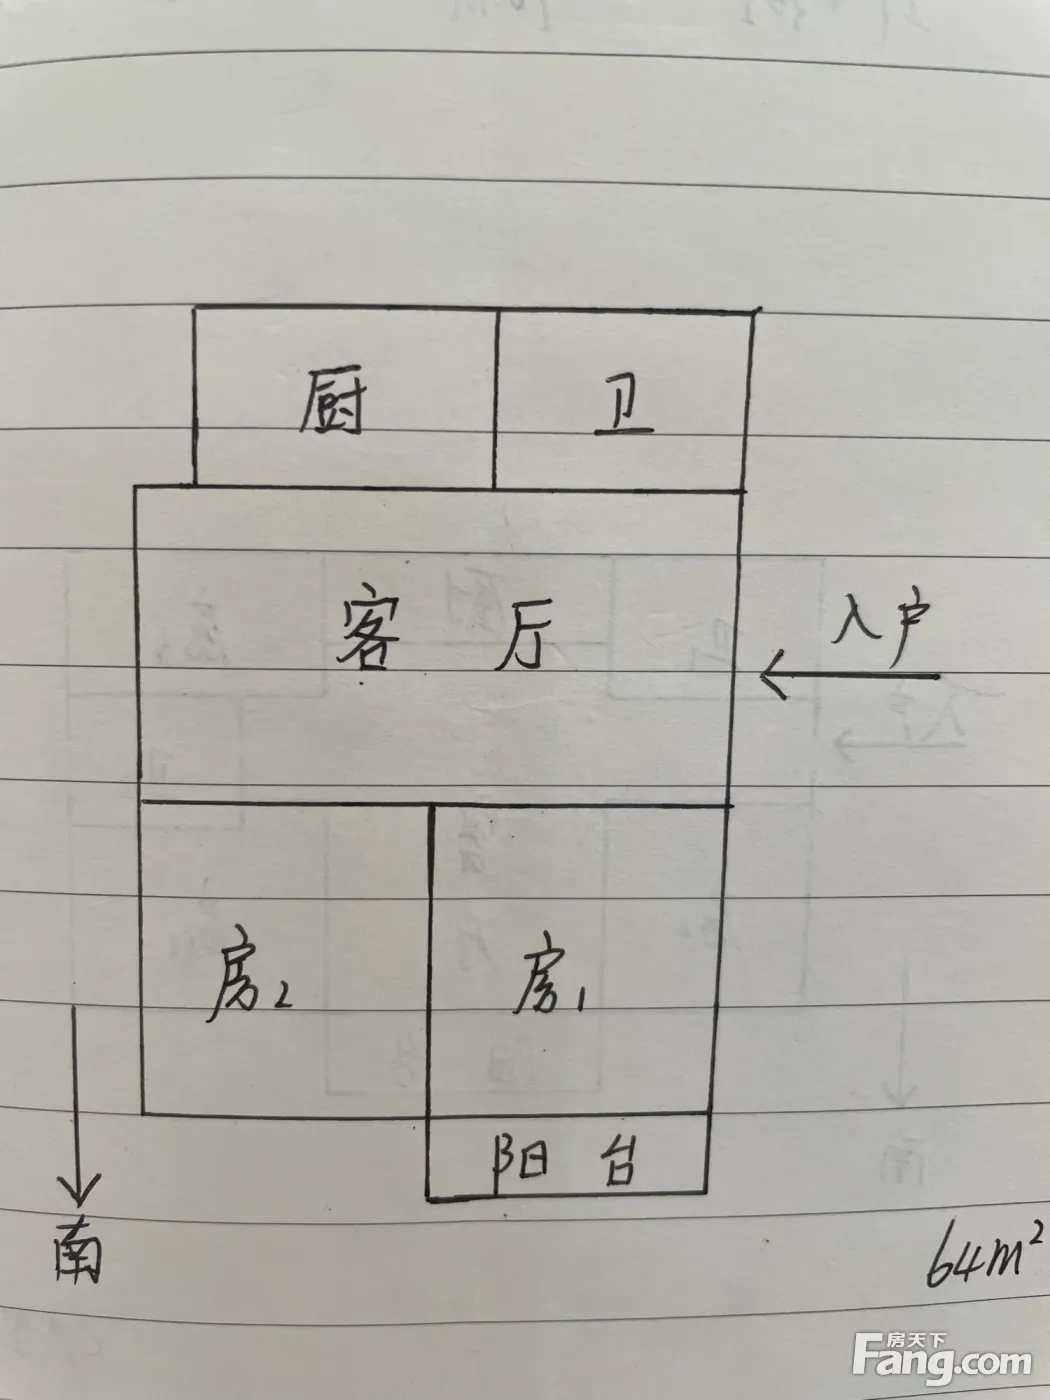 厨
卫
客厅
入户
房2
房1
阳台
南
64m²
房天下
Fang.com